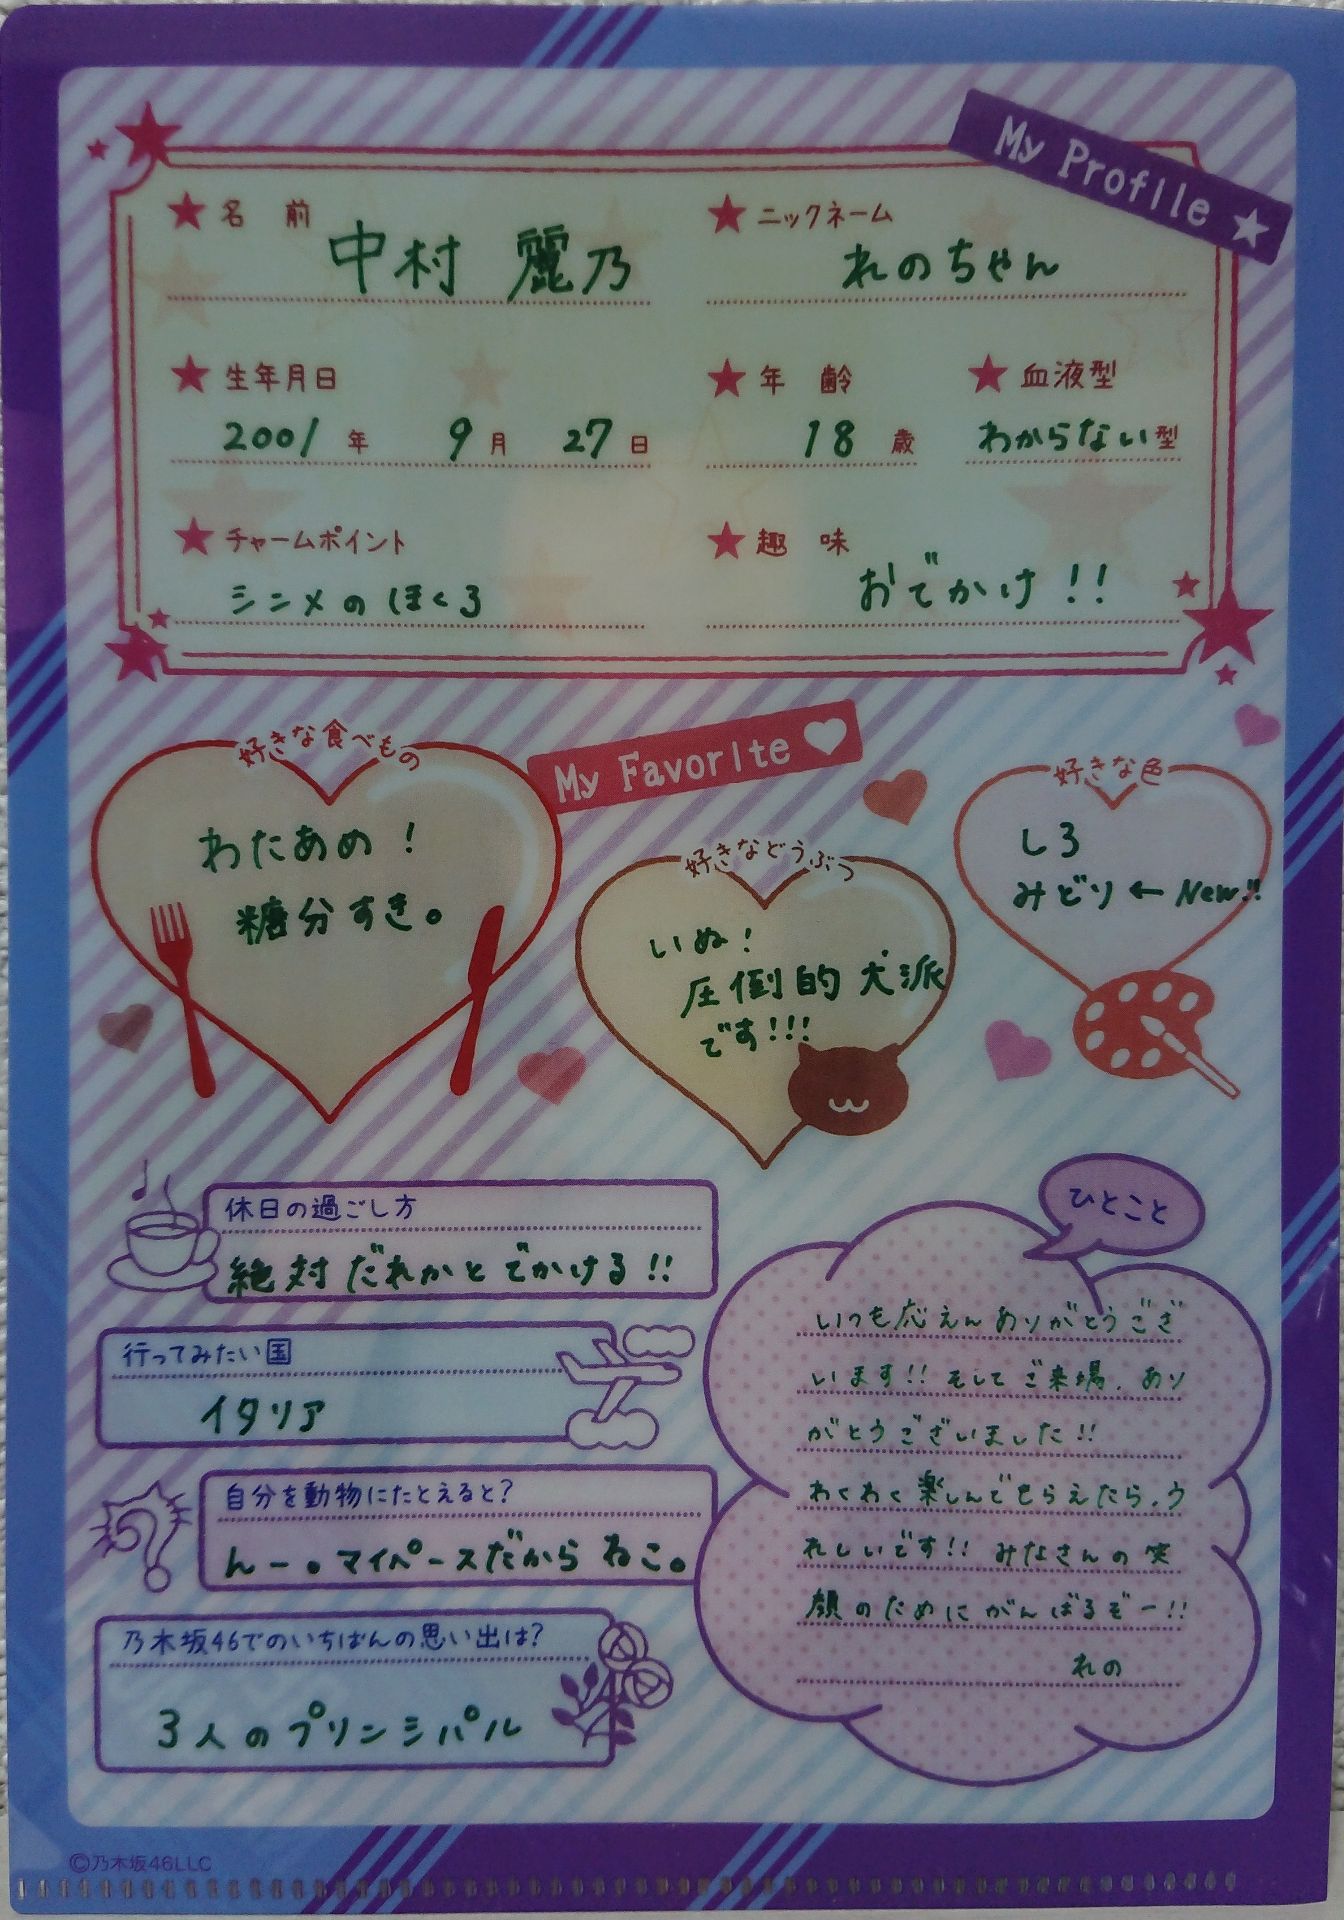 My Profile
名前
中村 麗乃
ニックネーム
れのちゃん
生年月日
2001年 9月 27日
年齢
18歳
血液型
わからない型
チャームポイント
シンメのほくろ
趣味
おでかけ!!
My Favorite
好きな食べもの
わたあめ!
糖分すき。
好きなどうぶつ
いぬ!
圧倒的犬派
です!!!
好きな色
しろ
みどり←New!!
休日の過ごし方
絶対だれかとでかける!!
行ってみたい国
イタリア
自分を動物にたとえると?
んー。マイペースだからねこ。
乃木坂46でのいちばんの思い出は?
3人のプリンシパル
ひとこと
いつも応えんありがとうござ
います!!そしてご来場、あり
がとうございました!!
わくわく楽しんでもらえたら、う
れしいです!!みなさんの笑
顔のためにがんばるぞー!!
れの
©乃木坂46LLC